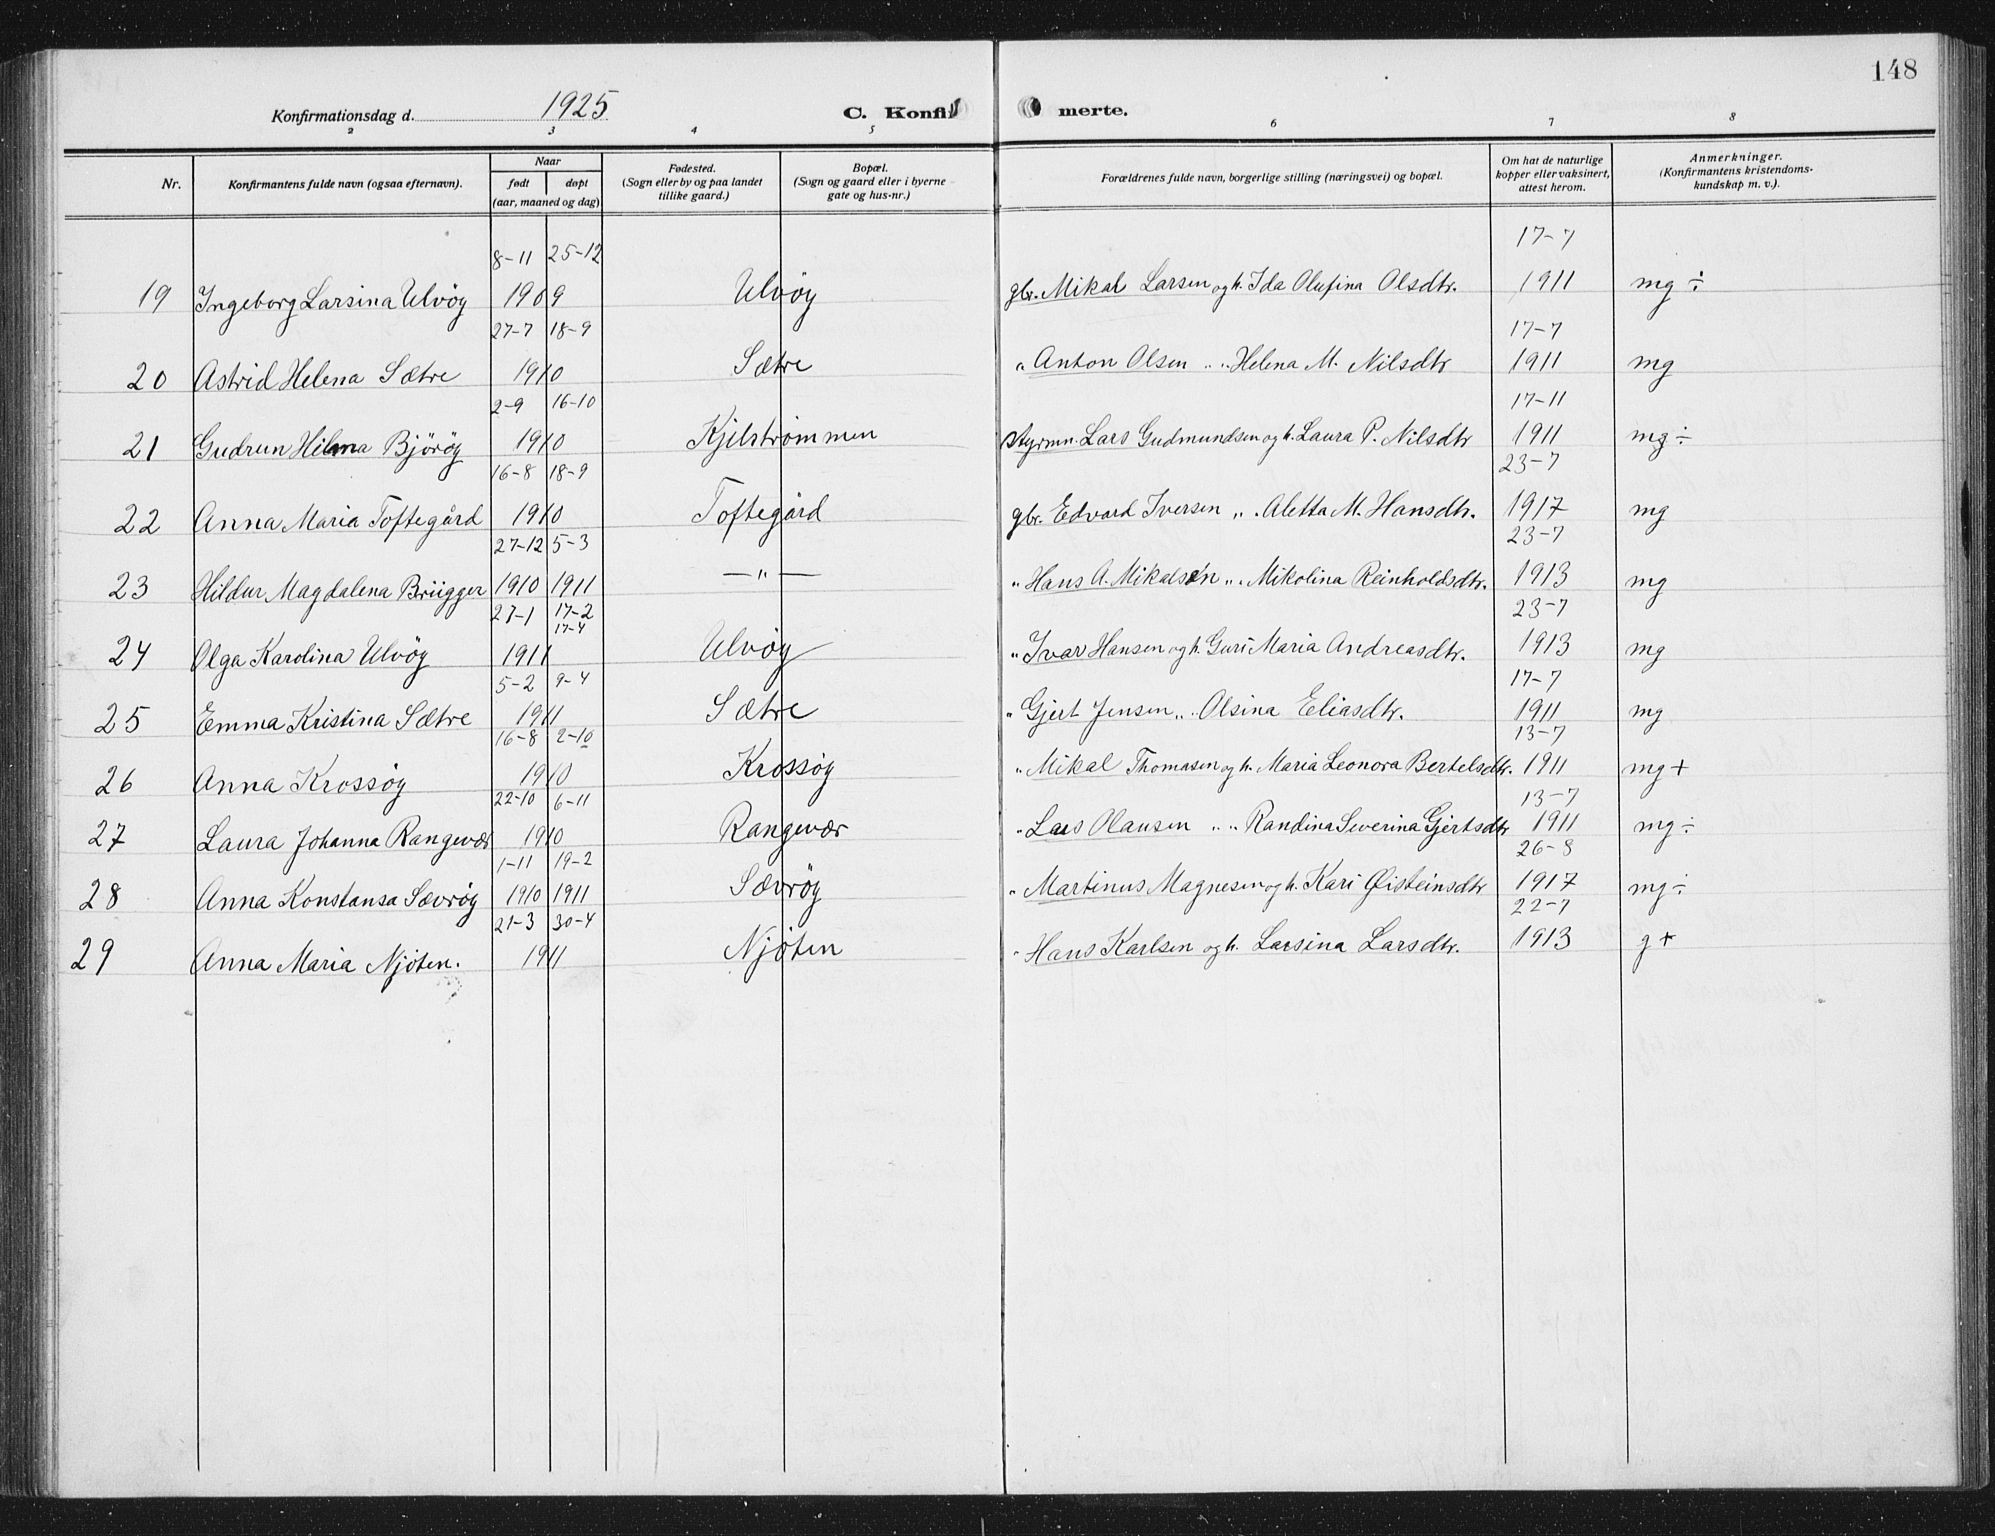 148
Konfirmationsdag d. 1925 C. Konfir merte.
2 3 4 5 6 7 8
Nr. Konfirmantens fulde navn (ogsaa efternavn). Naar født døpt (aar, maaned og dag) Fødested. (Sogn eller by og paa landet tillike gaard.) Bopæl. (Sogn og gaard eller i byerne gate og hus-nr.) Forældrenes fulde navn, borgerlige stilling (næringsvei) og bopæl. Om hat de naturlige kopper eller vaksinert, attest herom. Anmerkninger. (Konfirmantens kristendomskundskap m. v.).
8-11 25-12 17-7
19 Ingeborg Larsina Ulvöy 1909 Ulvöy gbr. Mikal Larsen og h. Ida Olufina Olsdtr. 1911 mg ÷
27-7 18-9 17-7
20 Astrid Helena Sætre 1910 Sætre " Anton Olsen " " Helena M. Nilsdtr 1911 mg
2-9 16-10 17-11
21 Gudrun Hilma Björöy 1910 Kjelstrømmen styrmn. Lars Gudmundsen og h. Laura P. Nilsdtr 1911 mg ÷
16-8 18-9 23-7
22 Anna Maria Toftegård 1910 Toftegård gbr. Edvard Iversen " " Aletta M. Hansdtr. 1917 mg
27-12 5-3 23-7
23 Hildur Magdalena Brügger 1910 1911 — " — " Hans A. Mikalsen " " Mikolina Reinholdsdtr. 1913 mg
27-1 17-2 23-7
17-4
24 Olga Karolina Ulvöy 1911 Ulvöy " Ivar Hansen og h. Guri Maria Andreasdtr. 1913 mg
5-2 9-4 17-7
25 Emma Kristina Sætre 1911 Sætre " Gjert Jensen " " Olsina Eliasdtr. 1911 mg
16-8 2-10 13-7
26 Anna Krossöy 1910 Krossöy " Mikal Thomasen og h. Maria Leonora Bertelsdtr. 1911 mg +
22-10 6-11 13-7
27 Laura Johanna Rangevær 1910 Rangevær " Lars Olausen " " Randina Severina Gjertsdtr 1911 mg ÷
1-11 19-2 26-8
28 Anna Konstansa Sævröy 1910 1911 Sævröy " Martinus Magnesen og h. Kari Øisteinsdtr 1917 mg ÷
21-3 30-4 22-7
29 Anna Maria Njöten. 1911 Njöten " Hans Karlsen og h. Larsina Larsdtr. 1913 g +